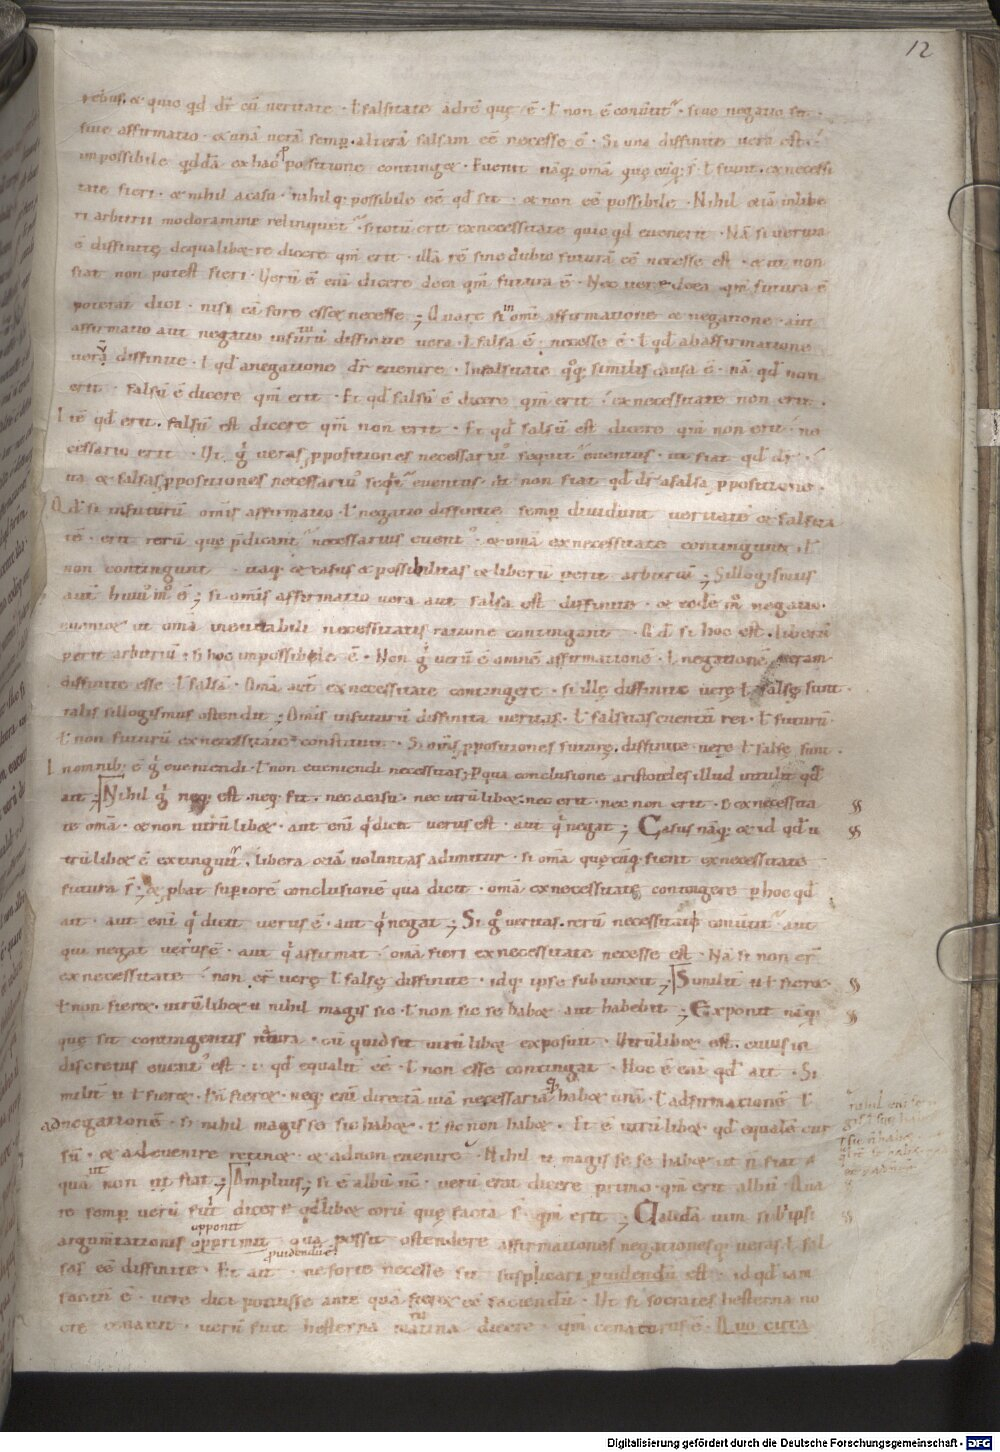 12
rebus, & quic qd dr̄ cū ueritate · ł falsitate adrē quę ē · ł non ē conūtit᷑ · siue negatio sit ·
siue affirmatio · & unā uerā semp̄ · alterā falsam eē necesse ē · Si una diffinite uera est ·
impossibile qddā ex hac ppositione contingit · Euenit nāq; omā quę cūq; s̄ ł fiunt · ex necessi
tate fieri · & nihil a casu · nihil q; possibile eē qd sit · & non eē possibile · Nihil etiā in libe
ri arbitrii moderamine relinquet᷑ · si totū erit ex necessitate quic qd euenerit · Nā si uerum
ē diffinite de qualibet re dicere qm̄ erit · illā rē sine dubio futurā eē necesse est · & ut non
fiat non potest fieri · Uerū ē eni dicere de ea qm̄ futura ē · Nec uere de ea qm̄ futura ē
poterat dici · nisi eā fore esset necesse ; Quare si in omi affirmatione & negatione · aut
affirmatio aut negatio in futurū diffinite uera · ł falsa ē · necesse ē · ł qd ab affirmatione
uerā diffinite · ł qd a negatione dr̄ euenire · In falsitate q̊q; similis causa ē · nā qd non
erit · falsū ē dicere qm̄ erit · Et qd falsū ē dicere qm̄ erit · ex necessitate non erit ·
Itē qd erit · falsū est dicere qm̄ non erit · Et qd falsū est dicere qm̄ non erit · ne
cessario erit · Ut g̊ ueras ppositiones necessari᷒ sequit᷑ euentus · ut fiat qd dr̄ ·
ita & falsas ppositiones necessari᷒ seqt᷑ euentus · ut non fiat qd dr̄ a falsa ppositione ·
Qd si in futurū omīs affirmatio · ł negatio diffinite semp̄ diuidunt ueritatē & falsita
tē · erit rerū quę p̄dicant᷑ necessarius euent᷒ · & omā ex necessitate contingunt · ł
non contingunt · itaq; & casus & possibilitas & liberū perit arbitriū ; Sillogismus
aut̄ hui᷒ m̊ ē ; si omīs affirmatio uera aut falsa est diffinite · & eodē m̊ negatio ·
euenit ut omā ineuitabili necessitatis ratione contingant · Qd si hoc est · liberū
perit arbitriū · si hoc impossibile ē · Non g̊ uerū ē omnē affirmationē · ł negationē ueram
diffinite esse ł falsā · Omā aut̄ ex necessitate contingere · si illę diffinite uerę ł falsę sunt ·
talis sillogismus ostendit ; Omīs in futurū diffinita ueritas · ł falsitas euentū rei · ł futurū
ł non futurū ex necessitate constituit · Si omīs ppositiones futurę · diffinite uerę ł false sunt ·
In omnib; ē g̊ eueniendi · ł non eueniendi necessitas ; P qua conclusione aristoteles illud intulit qd
ait ; Nihil g̊ neq; est · neq; fit · nec a casu · nec utrū libet · nec erit · nec non erit · s ex necessita
te omā · & non utrū libet · aut eni q̊ dicit uerus est · aut q̊ negat ; Casus nāq; & id qd u
trū libet ē extinguit᷑ · libera etiā uoluntas adimitur · si omā quęcūq; fient ex necessitate
futura s̄ ; & pbat superiorē conclusionē qua dicit · omā ex necessitate contingere p hoc qd
ait · aut eni q̊ dicit uerus ē · aut q̊ negat ; Si g̊ ueritas · rerū necessitatib; conūtit᷑ · aut
qui negat uerus ē · aut q̊ affirmat · omā fieri ex necessitate necesse est · Nā si non er̄
ex necessitate · non er̄ uerę ł falsę diffinite · idq; ipse subiunxit ; Similit̄ u ł fieret
ł non fieret · utrū libet u nihil magis sic · ł non sic se habet aut habebit ; Exponit nāq;
quę sit contingentis natura · cū quid sit utrū libet exposuit · Utrū libet est · cuius in
discretus euent᷒ est · i · qd equalit̄ eē · ł non esse contingat · Hoc ē eni qd ait · Si
milit̄ u ł fieret · ł n̄ fieret · neq; eni directā uiā necessariāq; habet unā · ł ad firmationē ł
ad negationē · si nihil magis se sic habet · ł sic non habet · Et ē utrū libet · qd equalē cur
sū · & ad euenire retinet · & ad non euenire · Nihil u magis se se habet ut n̄ fiat
quā non ut fiat ; Amplius ; si ē albū nc̄ · uerū erat dicere primo · qm̄ erit albū · Qua
re semp̄ uerū fuit dicere qdlibet eorū quę facta s̄ · qm̄ erit ; Ualidā uim sibi ipsi
opponit
argumtationis opprimit · qua possit ostendere affirmationes negationesq; ueras ł fal
puidendū ē
sas eē diffinite · Et ait · ne forte necesse sit suspicari puidendū est · id qd iam
factū ē · uere dici potuisse ante quā fieret eē faciendū · Ut si socrates hesterna no
cte cenauit · uerū fuit hesterna matutina dicere · qm̄ cenaturus ē · Quo circa
Digitalisierung gefördert durch die Deutsche Forschungsgemeinschaft - DFG